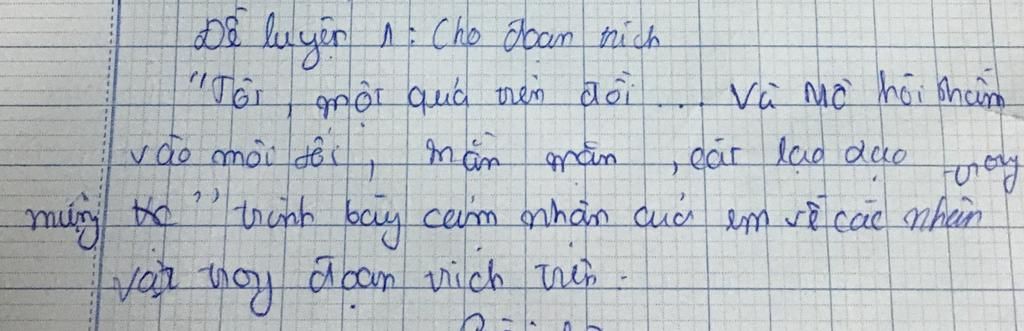 Đề luyện 1: Cho đoạn trích
"Tôi, một quả trên đồi... Và mồ hôi thấm
vào môi tôi, mằn mặn, cát lạo xạo trong
miệng" trình bày cảm nhận của em về các nhân
vật trong đoạn trích trên.